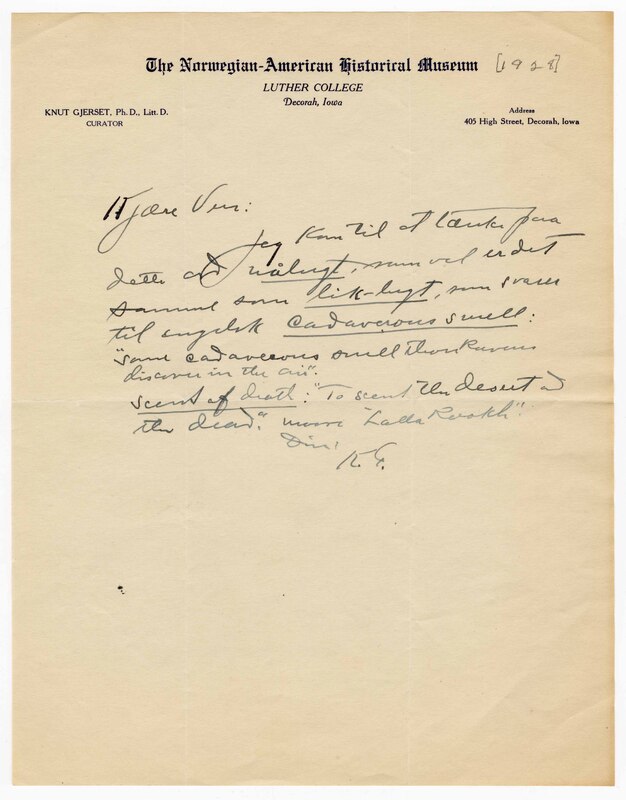 The Norwegian-American Historical Museum [1928]
LUTHER COLLEGE
Decorah, Iowa
KNUT GJERSET, Ph. D., Litt. D.
CURATOR
Address
405 High Street, Decorah, Iowa
Kjære Ven:
Jeg kom til at tænke paa
dette ord nålugt, som vel er det
samme som lik-lugt, som svarer
til engelsk cadaverous smell:
"some cadaverous smell those Ravens
discover in the air".
scent of death: "To scent the desert and
the dead." Moore "Lalla Rookh".
Din
K. G.